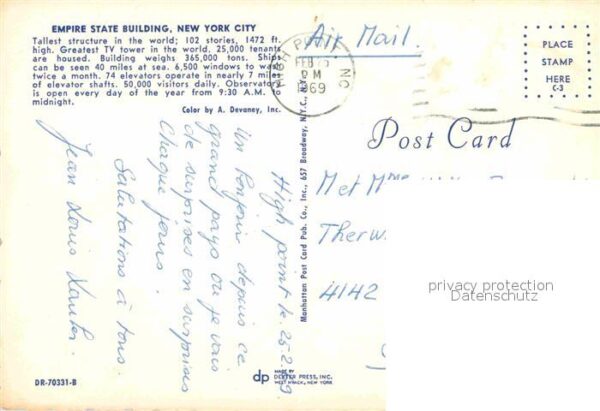 EMPIRE STATE BUILDING, NEW YORK CITY
Tallest structure in the world; 102 stories, 1472 ft.
high. Greatest TV tower in the world. 25,000 tenants
are housed. Building weighs 365,000 tons. Ships
can be seen 40 miles at sea. 6,500 windows to wash
twice a month. 74 elevators operate in nearly 7 miles
of elevator shafts. 50,000 visitors daily. Observatory
is open every day of the year from 9:30 A.M. to
midnight.
Color by A. Devaney, Inc.
Air Mail.
HIGH POINT NC
FEB
PM
1969
PLACE
STAMP
HERE
C-3
Post Card
High point le 25.2.69
Un bonjour depuis ce
grand pays où je vais
de surprises en surprises
chaque jour.
Salutations à tous.
Jean Louis
Manhattan Post Card Pub. Co., Inc., 657 Broadway, N.Y.C., N.Y.
Met Mme
Therw
4142
privacy protection
Datenschutz
DR-70331-B
dp
MADE BY
DEXTER PRESS, INC.
WEST NYACK, NEW YORK